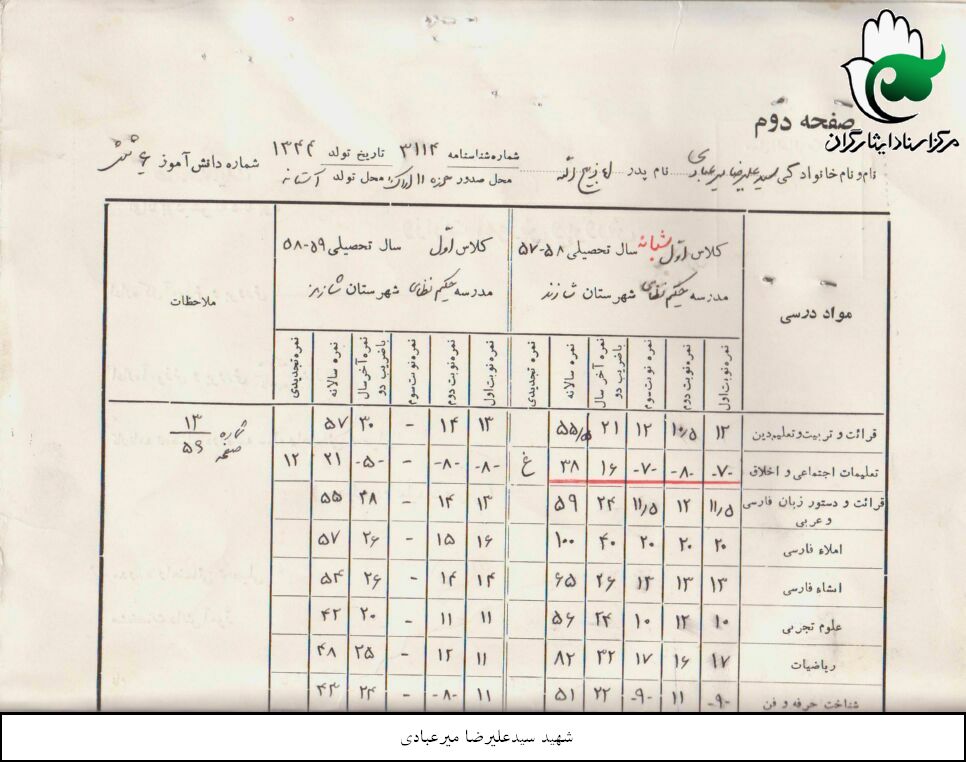 مرکز اسناد ایثارگران
صفحه دوم
نام و نام خانوادگی سید علیرضا میرعبادی نام پدر ذبیح الله شماره شناسنامه ۳۱۱۴ تاریخ تولد ۱۳۴۴ شماره دانش آموز ۶ شش
محل صدور حوزه ۱۱ اراک محل تولد آستانه
مواد درسی
کلاس اول شبانه سال تحصیلی ۵۸-۵۷
مدرسه حکیم نظامی شهرستان شازند
کلاس اول سال تحصیلی ۵۹-۵۸
مدرسه حکیم نظامی شهرستان شازند
ملاحظات
نمره نوبت اول نمره نوبت دوم نمره نوبت سوم نمره آخر سال با ضریب دو نمره سالانه نمره تجدیدی نمره نوبت اول نمره نوبت دوم نمره نوبت سوم نمره آخر سال با ضریب دو نمره سالانه نمره تجدیدی
قرائت و تربیت و تعلیم دین ۱۲ ۱۰/۵ ۱۲ ۲۱ ۵۵/۵ ۱۳ ۱۴ - ۳۰ ۵۷
شماره صفحه ۱۳/۵۹
تعلیمات اجتماعی و اخلاق -۷- -۸- -۷- ۱۶ ۳۸ غ -۸- -۸- - -۵- ۲۱ ۱۲
قرائت و دستور زبان فارسی و عربی ۱۱/۵ ۱۲ ۱۱/۵ ۲۴ ۵۹ ۱۳ ۱۴ - ۲۸ ۵۵
املاء فارسی ۲۰ ۲۰ ۲۰ ۴۰ ۱۰۰ ۱۶ ۱۵ - ۲۶ ۵۷
انشاء فارسی ۱۳ ۱۳ ۱۳ ۲۶ ۶۵ ۱۴ ۱۴ - ۲۶ ۵۴
علوم تجربی ۱۰ ۱۲ ۱۰ ۲۴ ۵۶ ۱۱ ۱۱ - ۲۰ ۴۲
ریاضیات ۱۷ ۱۶ ۱۷ ۳۲ ۸۲ ۱۱ ۱۲ - ۲۵ ۴۸
شناخت حرفه و فن -۹- ۱۱ -۹- ۲۲ ۵۱ ۱۱ -۸- - ۲۴ ۴۳
شهید سیدعلیرضا میرعبادی